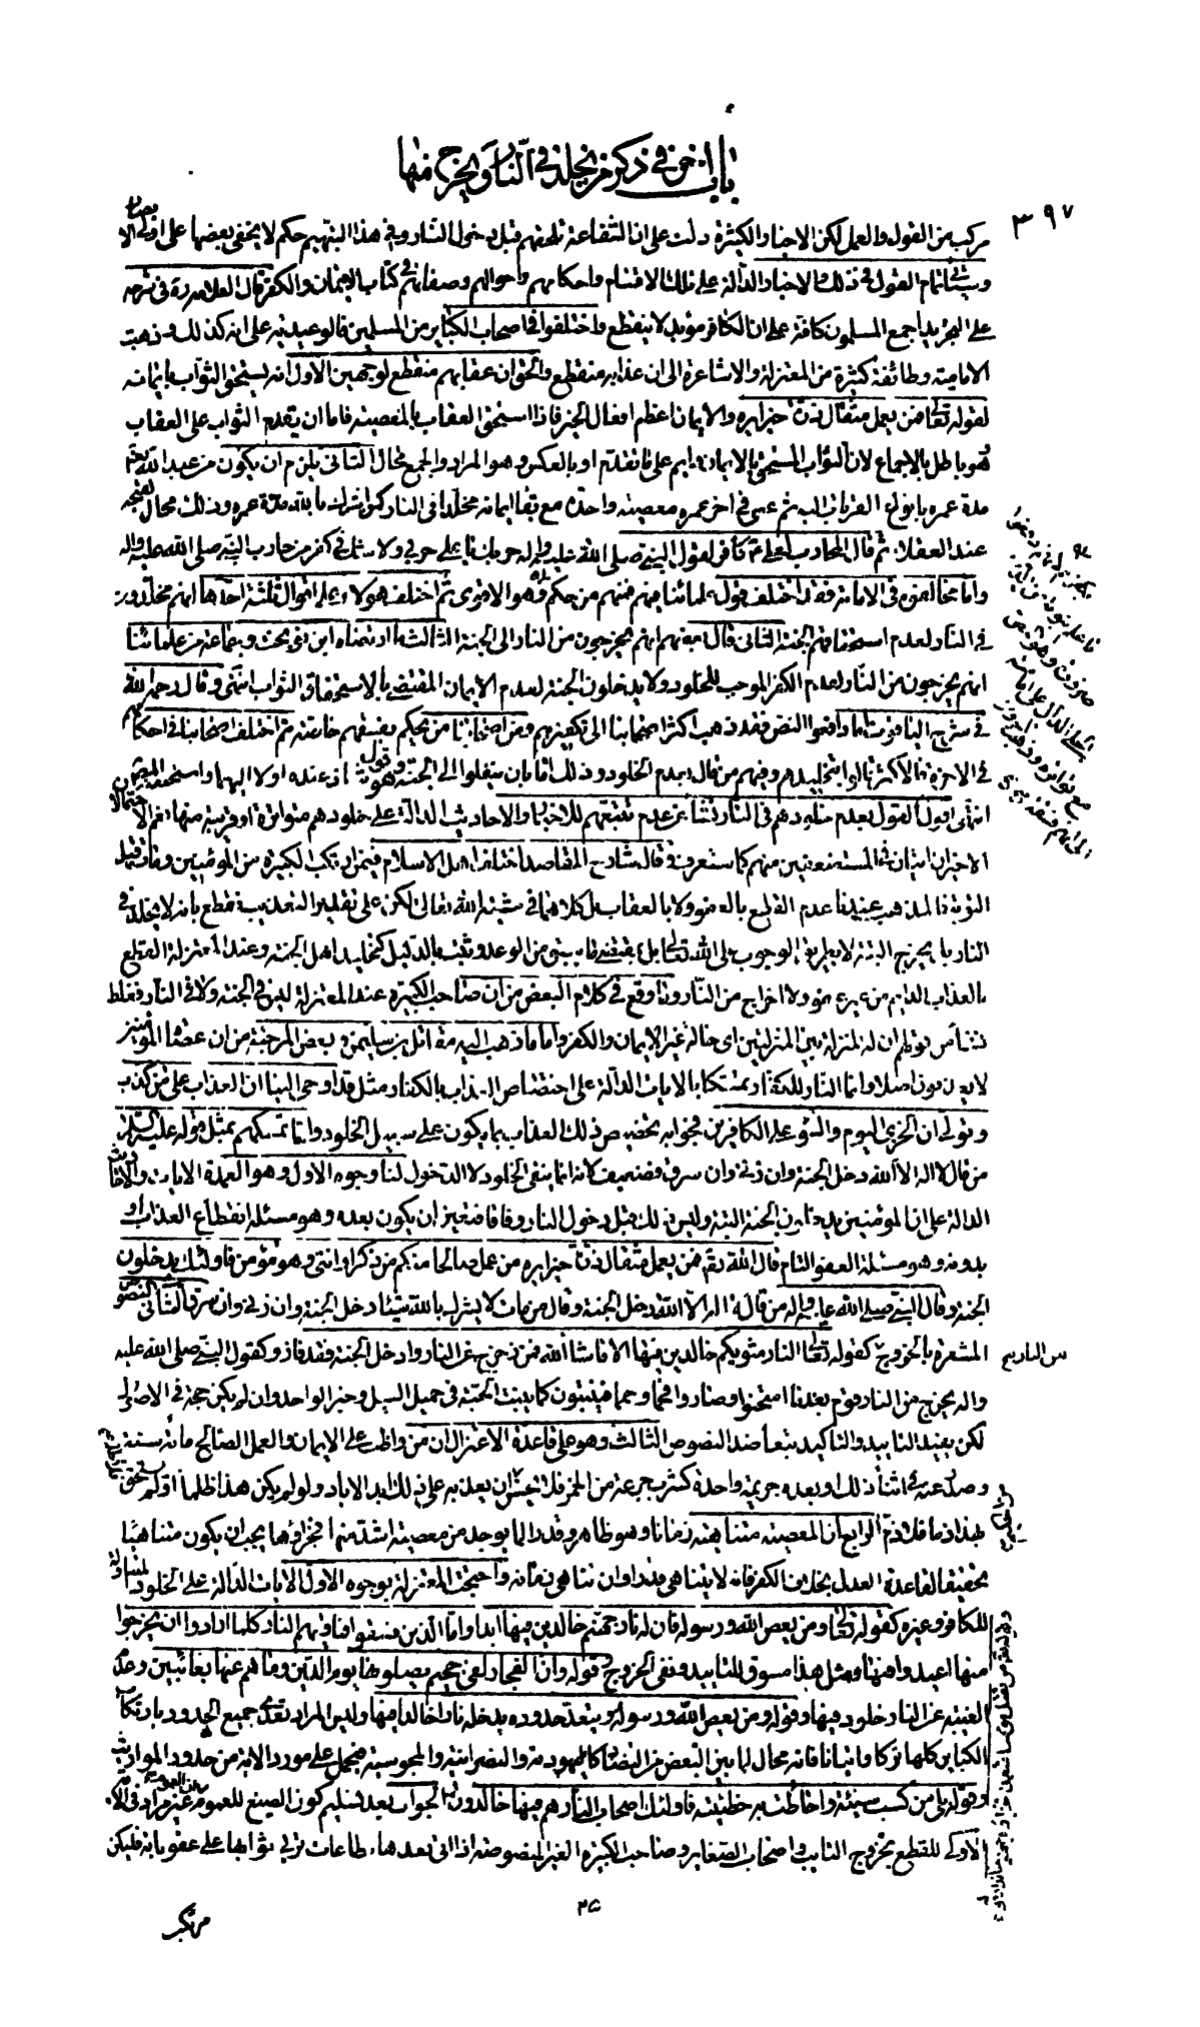 باب اخر في ذكر من يخلد في النار ومن يخرج منها
٣٩٧
مركب من القول والعمل لكن الاخبار الكثيرة دلت على ان الشفاعة تلحقهم قبل دخول النار وفي هذا التبهيم حكم لا يخفى بعضها على اولي الابصار
وسيأتي تمام القول في ذلك والاخبار الدالة على تلك الاقسام واحكامهم واحوالهم وصفاتهم في كتاب الايمان والكفر قال العلامة ره في شرحه
على التجريد اجمع المسلمون كافة على ان الكافر مؤبد لا ينقطع واختلفوا في اصحاب الكباير من المسلمين فالوعيدية على انه كذلك وذهبت
الامامية وطائفة كثيرة من المعتزلة والاشاعرة الى ان عذابه منقطع والحق ان عقابهم منقطع لوجهين الاول انه يستحق الثواب بايمانه
لقوله تعالى فمن يعمل مثقال ذرة خيرا يره والايمان اعظم افعال الخير فاذا استحق العقاب بالمعصية فاما ان يقدم الثواب على العقاب
فهو باطل بالاجماع لان الثواب المستحق بالايمان دايم على ما تقدم او بالعكس وهو المراد والجمع محال الثاني يلزم ان يكون من عبد الله تعالى
مدة عمره بانواع القربات اليه ثم عصى في اخر عمره معصية واحدة مع بقاء ايمانه مخلدا في النار كمن اشرك بالله مدة عمره وذلك محال لقبحه
عند العقلاء ثم قال المحارب لعلي ع كافر لقول النبي صلى الله عليه واله حربك يا علي حربي ولا شك في كفر من حارب النبي صلى الله عليه واله
واما مخالفوه في الامامة فقد اختلف قول علمائنا فيهم فمنهم من حكم بكفرهم وهو الاقوى ثم اختلف هؤلاء على اقوال ثلثة احدها انهم مخلدون
في النار لعدم استحقاقهم الجنة الثاني قال بعضهم انهم يخرجون من النار الى الجنة الثالث ما ارتضاه ابن نوبخت وجماعة من علمائنا
انهم يخرجون من النار لعدم الكفر الموجب للخلود ولا يدخلون الجنة لعدم الايمان المقتضي لاستحقاق الثواب انتهى وقال رحمه الله
في شرح الياقوت اما دافعوا النص فقد ذهب اكثر اصحابنا الى تكفيرهم ومن اصحابنا من يحكم بفسقهم خاصة ثم اختلف اصحابنا في احكامهم
في الاخرة فالاكثر قالوا بتخليدهم وفيهم من قال بعدم الخلود وذلك اما بان ينقلوا الى الجنة وهو قول شاذ عنده اولا اليهما واستحسنه المصنف
انتهى اقول القول بعدم خلودهم في النار نشأ من عدم تتبعهم للاخبار والاحاديث الدالة على خلودهم متواترة او قريبة منها نعم الاحتمالان
الاخيران اتيان في المستضعفين منهم كما ستعرف وقال شارح المقاصد اختلف اهل الاسلام فيمن ارتكب الكبيرة من المؤمنين ومات قبل
التوبة فالمذهب عندنا عدم القطع بالعفو ولا بالعقاب بل كلاهما في مشية الله تعالى لكن على تقدير التعذيب نقطع بانه لا يخلد في
النار بل يخرج البتة لا بطريق الوجوب على الله تعالى بل بمقتضى ما سبق من الوعد وثبت بالدليل كتخليد اهل الجنة وعند المعتزلة القطع
بالعذاب الدايم من غير عفو ولا اخراج من النار وما وقع في كلام البعض من ان صاحب الكبيرة عند المعتزلة ليس في الجنة ولا في النار فغلط
نشأ من قولهم ان له المنزلة بين المنزلتين اى حالة غير الايمان والكفر واما ما ذهب اليه مقاتل بن سليمان وبعض المرجئة من ان عصاة المؤمنين
لا يعذبون اصلا وانما النار للكفار تمسكا بالايات الدالة على اختصاص العذاب بالكفار مثل قد اوحي الينا ان العذاب على من كذب
وتولى ان الخزي اليوم والسوء على الكافرين فجوابه تخصيص ذلك العذاب بما يكون على سبيل الخلود واما تمسكهم بمثل قوله عليه السلام
من قال لا اله الا الله دخل الجنة وان زنى وان سرق فضعيف لانه انما ينفي الخلود لا الدخول لنا وجوه الاول وهو العمدة الايات والاحاديث
الدالة على ان المؤمنين يدخلون الجنة البتة وليس ذلك قبل دخول النار وفاقا فتعين ان يكون بعده وهو مسئلة انقطاع العذاب او
بدونه وهو مسئلة العفو التام قال الله تع فمن يعمل مثقال ذرة خيرا يره من عمل صالحا منكم من ذكر او انثى وهو مؤمن فاولئك يدخلون
الجنة وقال النبي صلى الله عليه واله من قال لا اله الا الله دخل الجنة وقال من مات لا يشرك بالله شيئا دخل الجنة وان زنى وان سرق الثاني النصوص
المشعرة بالخروج كقوله تعالى النار مثويكم خالدين فيها الا ما شاء الله فمن زحزح عن النار وادخل الجنة فقد فاز وكقول النبي صلى الله عليه
من النار يخرج
واله يخرج من النار قوم بعد ما امتحشوا وصاروا فحما وحمما فينبتون كما ينبت الحبة في حميل السيل وخبر الواحد وان لم يكن حجة في الاصول
لكن يفيد التاييد والتاكيد بتعاضد النصوص الثالث وهو على قاعدة الاعتزال ان من واظب على الايمان والعمل الصالح مائة سنة
وصدر عنه في اثناء ذلك او بعده جريمة واحدة كشرب جرعة من الخمر فلا يحسن ان يعذبه على ذلك ابد الاباد ولو لم يكن هذا ظلما فلا ظلم او لم يستحق
بهذا ذما فلا ذم الرابع ان المعصية متناهية زمانا وهو ظاهر وقدرا لما يوجد من معصية اشد منها فجزاؤها يجب ان يكون متناهيا
تحقيقا لقاعدة العدل بخلاف الكفر فانه لا يتناهى قدرا وان تناهى زمانه واحتجت المعتزلة بوجوه الاول الايات الدالة على الخلود المتناولة
للكافر وغيره كقوله تعالى ومن يعص الله ورسوله فان له نار جهنم خالدين فيها ابدا واما الذين فسقوا فماويهم النار كلما ارادوا ان يخرجوا
منها اعيدوا فيها ومثل هذا مسوق للتاييد ونفي الخروج وقوله وان الفجار لفي جحيم يصلونها يوم الدين وما هم عنها بغائبين وعدم
الغيبة عن النار خلود فيها وقوله ومن يعص الله ورسوله ويتعد حدوده يدخله نارا خالدا فيها وليس المراد تعدى جميع الحدود بارتكاب
الكباير كلها تركا واتيانا فانه محال لما بين البعض من التضاد كاليهودية والنصرانية والمجوسية فيحمل على مورد الاية من حدود المواريث
وقوله بلى من كسب سيئة واحاطت به خطيئته فاولئك اصحاب النار هم فيها خالدون والجواب بعد تسليم كون الصيغ للعموم ان العموم غير مراد في الاية
الاولى للقطع بخروج التايب واصحاب الصغاير وصاحب الكبيرة الغير المنصوصة اذا اتى بعدها بطاعات يربي ثوابها على عقوباته فليكن
٢۵
مرتكب